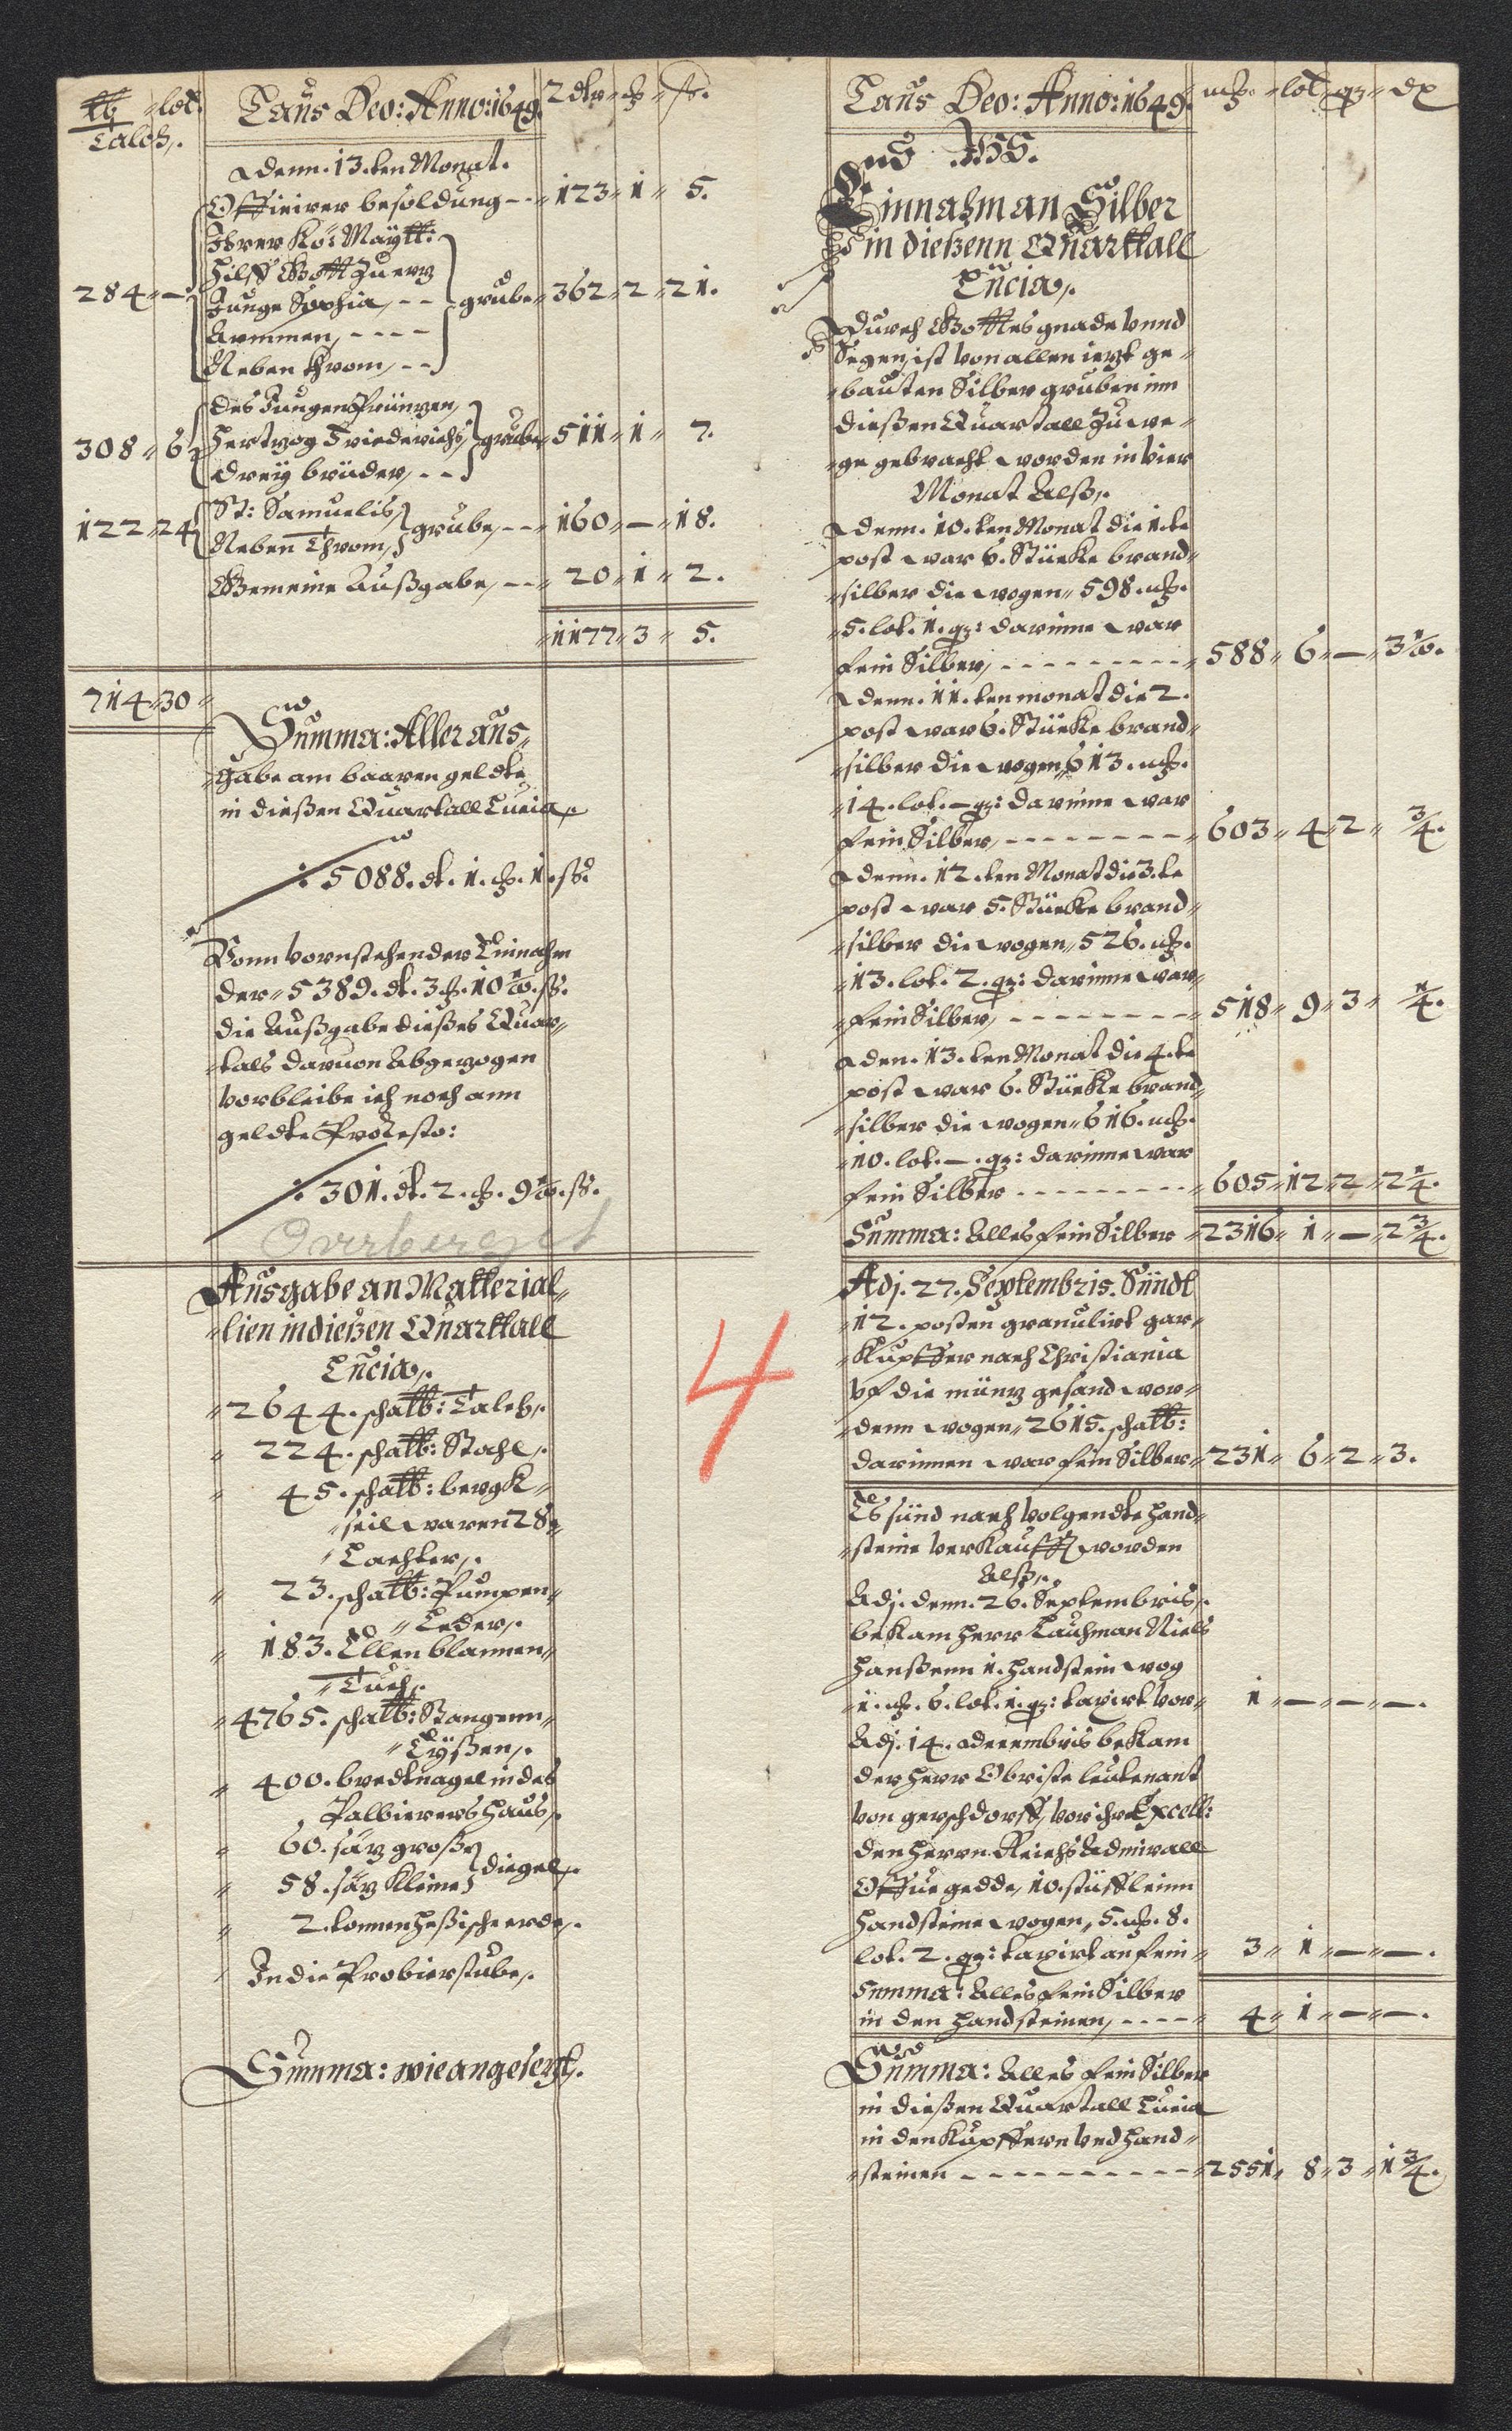 ℔ " lot.
Talch,.
Laus Deo: Anno: 1649.
Rdlr " ꝟ " ß.
denn. 13. ten Monat.
Officirer besoldung -- " 123 " 1 " 5.
Ihrer Kö: Maÿtt:
Hilff Gott Zu ertz
284 " — Junge Sophia, -- grube " 362 " 2 " 21.
Armmen, ----
Neben throm, --
des Jungen Printzen,
308 " 6 Hertzog Friederichs, grube " 511 " 1 " 7.
dreÿ brüder, --
St: Samuelis,
122 " 24 Neben Throm, grube, -- " 160 " — " 18.
Gemeine Außgabe, -- " 20 " 1 " 2.
" 1177 " 3 " 5.
714 " 30 "
Summa: Aller aus"
"gabe am baaren geldte
in dießen Quartall Lucia,.
5088. dt. 1. ꝟ. 1. ß.
Vonn vornstehender Einnahm
der " 5389. dt. 3 ꝟ. 10 1/10. ß.
die Außgabe dießes Quar"
"tals daruon Abgezogen
vorbleibe ich noch ann
geldte Protesto:
301. dt. 2. ꝟ. 9 1/10. ß.
Overberget
Ausgabe an Matterial"
"lien in dießen Quarttall
Lucia,.
" 2644. scha℔: Talch,.
" 224. scha℔: Stahl,.
" 45. scha℔: bergk"
"seil waren 28"
"Lachter,.
" 23. scha℔: Pumpen"
"Leder,.
" 183. Ellen blannen"
"Tuch,.
" 4765. scha℔: Stangenn"
"Eÿßen,.
" 400. bredtnagel in des
Palbierers Haus,.
" 60. satz große
" 58. satz Kleine diegel,.
" 2. tonnen Heßische erde,.
In die Probierstube,.
Summa: wie angesetzt,.
4
Laus Deo: Anno: 1649.
mꝟ. " lot " qz " dꝟ
Einnahm an Silber
in dießenn Quarttall
Lucia,.
Durch Gottes gnade vnnd
Segen, ist von allen ietzt ge"
"bauten Silber gruben inn
dießen Quartall Zu we"
"ge gebracht worden in Vier
Monat Alß,.
denn. 10. ten Monat die 1. te
post war 6. Stücke brand"
"silber die wogen " 598. mꝟ.
" 5. lot. 1. qz: darinne war
fein Silber, --------- " 588 " 6 " — " 3 1/10.
denn. 11. ten monat die 2.
post war 6. Stücke brand"
"silber die wogen " 613. mꝟ.
" 14. lot. — qz: darinne war
fein Silber, -------- " 603 " 4 " 2 " 3/4.
denn. 12. ten Monat die 3. te
post war 5. Stücke brand"
"silber die wogen " 526. mꝟ.
" 13. lot. 2. qz: darinne war"
"fein Silber, -------- " 518 " 9 " 3 " 1/4.
den. 13. ten Monat die 4. te
post war 6. Stücke brand"
"silber die wogen " 616. mꝟ.
" 10. lot. —. qz: darinne war
fein Silber --------- " 605 " 12 " 2 " 2 1/4.
Summa: Alles fein Silber " 2316 " 1 " — " 2 3/4.
Adj. 27. Septembris. Sündt
" 12. posten granulirt gar"
"Kupffer nach Christiania
vf die müntz gesand wor"
"denn wogen " 2615. scha℔:
darinnen war fein Silber " 231 " 6 " 2 " 3.
Es sünd nach volgendte hand"
"steine verkaufft worden
Alß,.
Adj. denn. 26. Septembris,.
bekam Herr Lauhman Niels
Hanßenn 1. handstein wog
" 1. mꝟ. 6. lot. 1. qz: taxirt vor " 1 " — " — " —.
Adj. 14. decembris bekam
der Herr Obriste leutenant
von gerschdorff, vor ihr Excell:
den Herrn Reichs Admirall
Offue gedde, 10. stüfflein
Handsteine wogen, 5. mꝟ. 8.
lot. 2. qz: taxirt an fein " 3 " 1 " — " —.
Summa: Alles fein Silber
in den Handsteinen, ---- " 4 " 1 " — " —.
Summa: Alles fein Silber
in dießen Quartall Lucia
in den Kupffern vnd Hand"
"steinen ---------- " 2551 " 8 " 3 " 1 3/4.